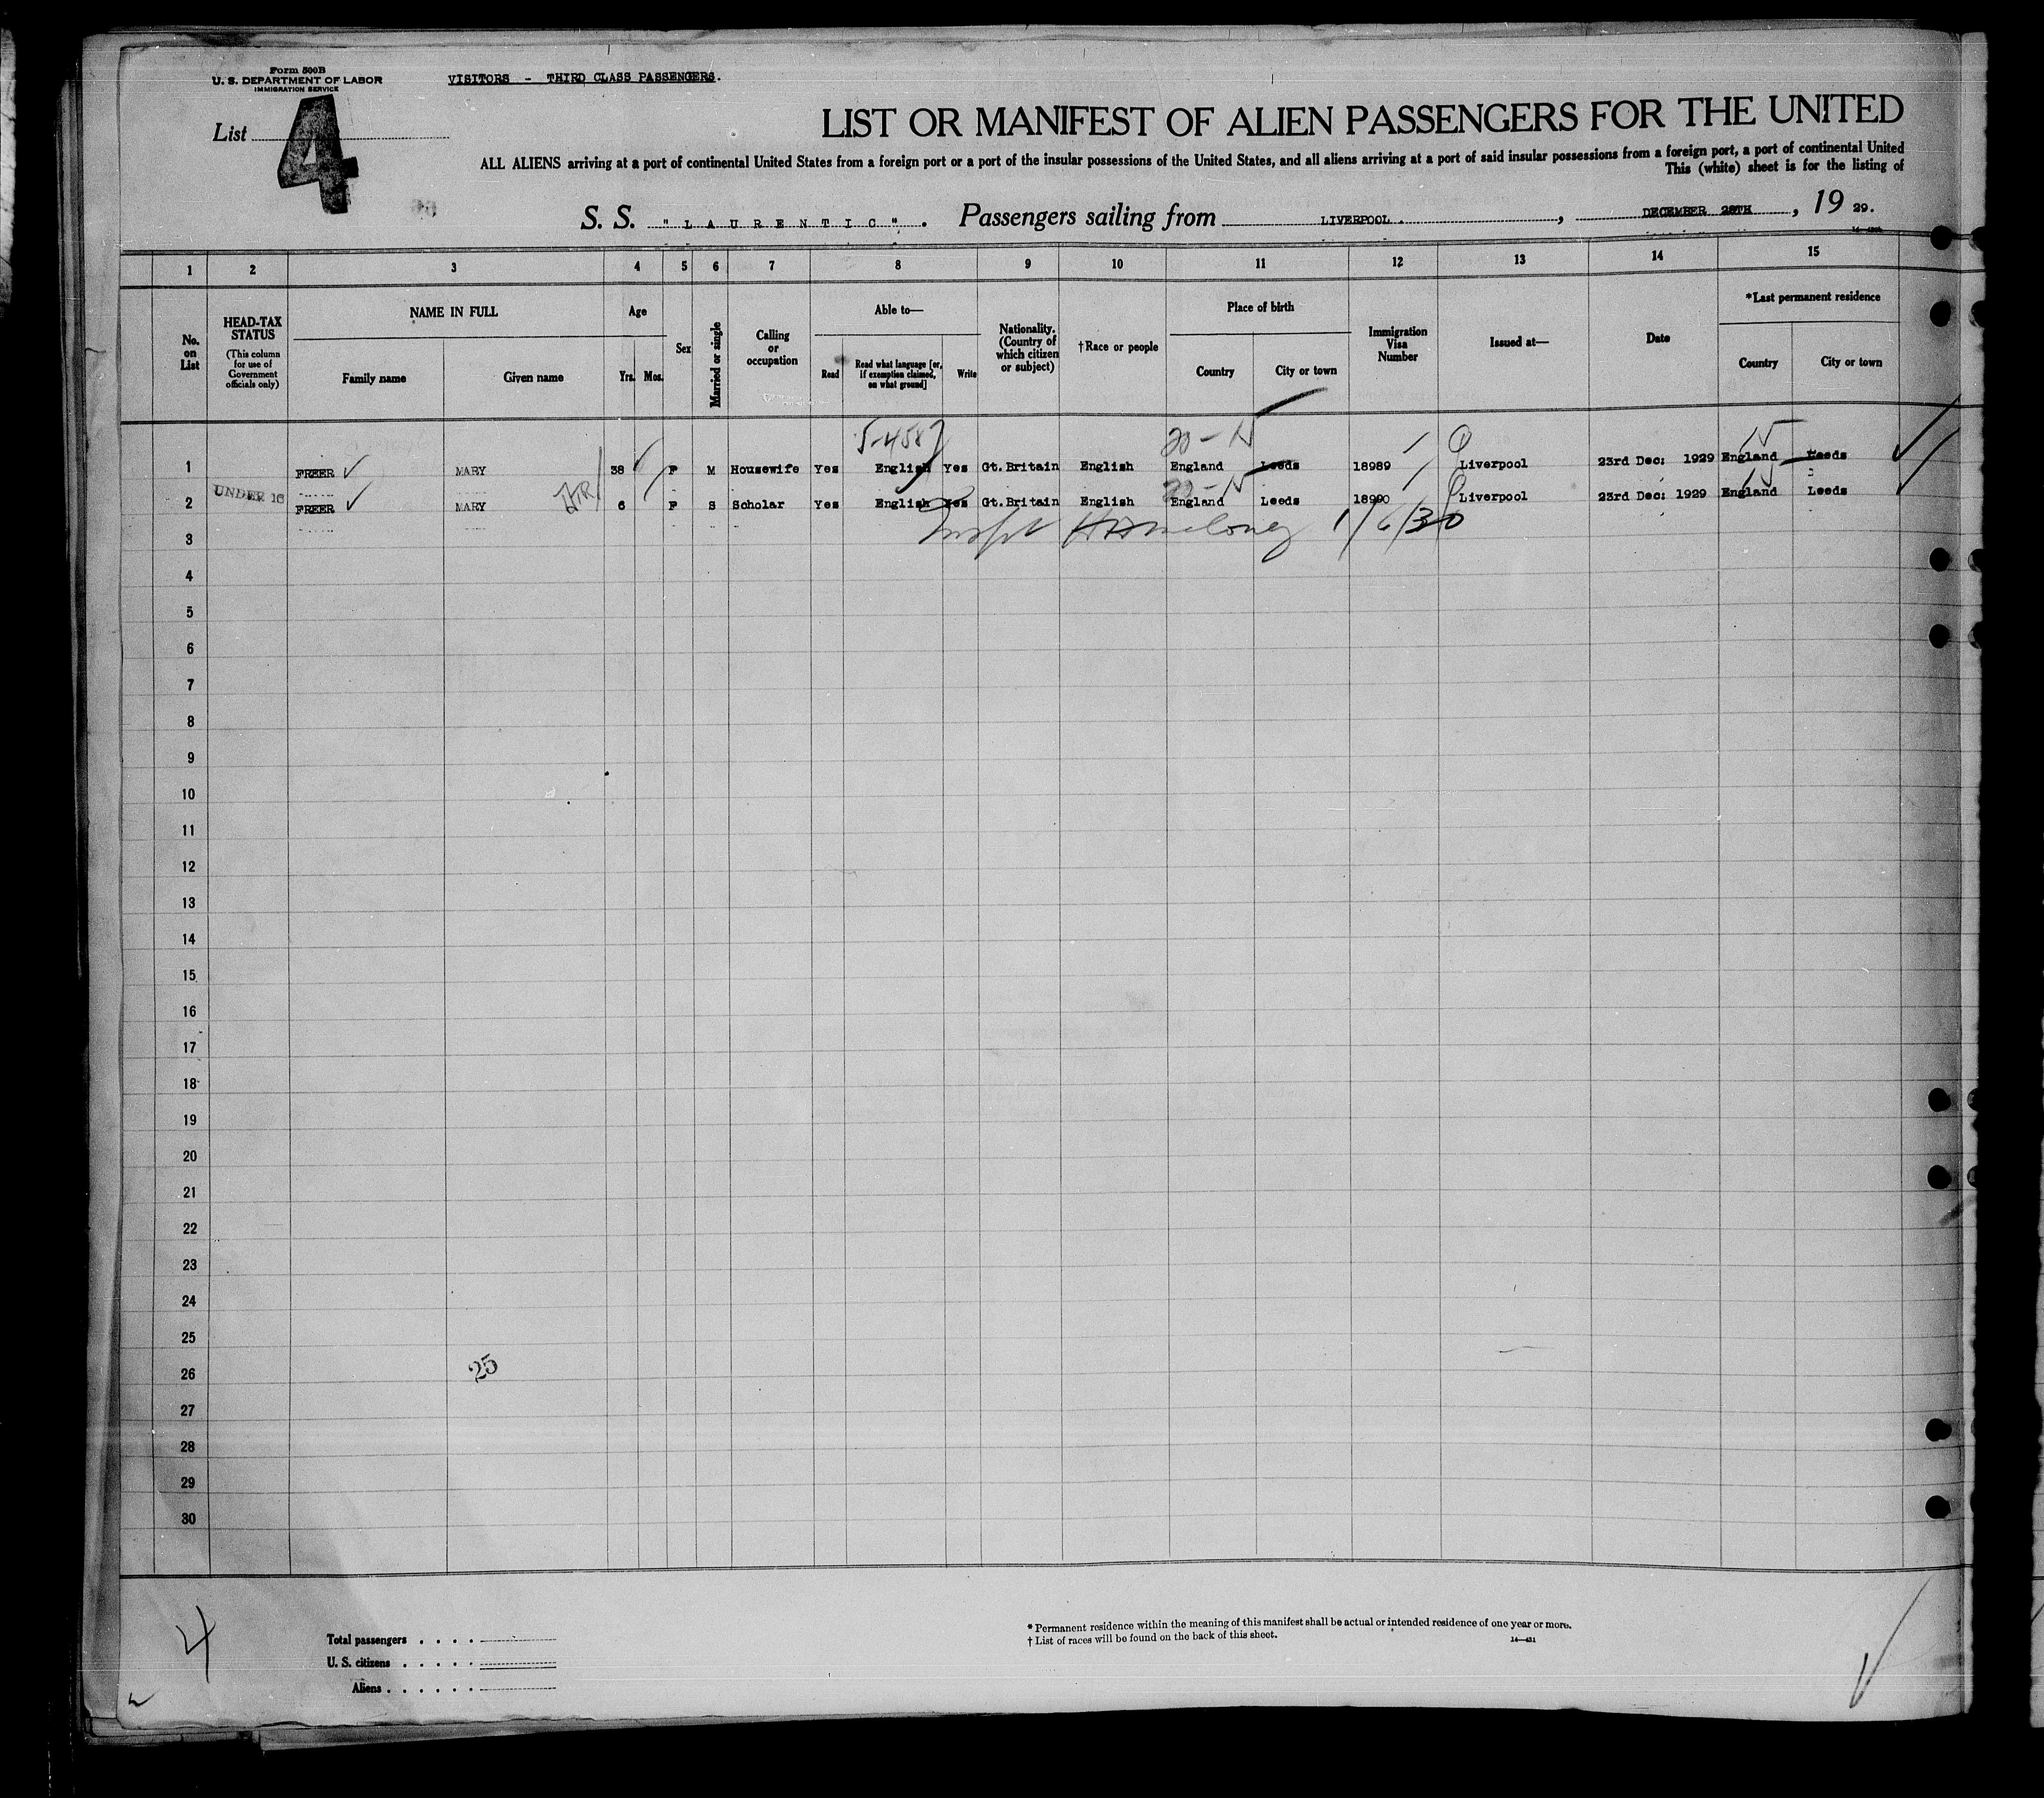 Form 500B
U. S. DEPARTMENT OF LABOR
IMMIGRATION SERVICE
VISITORS - THIRD CLASS PASSENGERS.
List 4
LIST OR MANIFEST OF ALIEN PASSENGERS FOR THE UNITED
ALL ALIENS arriving at a port of continental United States from a foreign port or a port of the insular possessions of the United States, and all aliens arriving at a port of said insular possessions from a foreign port, a port of continental United
This (white) sheet is for the listing of
S. S. "LAURENTIC". Passengers sailing from LIVERPOOL. , DECEMBER 28TH , 19 29.
1 2 3 4 5 6 7 8 9 10 11 12 13 14 15
No. on List
HEAD-TAX STATUS (This column for use of Government officials only)
NAME IN FULL
Family name
Given name
Age
Yrs. Mos.
Sex
Married or single
Calling or occupation
Able to—
Read
Read what language [or, if exemption claimed, on what ground]
Write
Nationality. (Country of which citizen or subject)
†Race or people
Place of birth
Country
City or town
Immigration Visa Number
Issued at—
Date
*Last permanent residence
Country
City or town
5-4587
20-15
15
1 FREER MARY 38 F M Housewife Yes English Yes Gt.Britain English England Leeds 18989 Liverpool 23rd Dec: 1929 England Leeds
20-15
15
2 UNDER 16 FREER MARY 6 F S Scholar Yes English Yes Gt.Britain English England Leeds 18990 Liverpool 23rd Dec: 1929 England Leeds
1/6/30
3
4
5
6
7
8
9
10
11
12
13
14
15
16
17
18
19
20
21
22
23
24
25
26 25
27
28
29
30
4
Total passengers
U. S. citizens
Aliens
* Permanent residence within the meaning of this manifest shall be actual or intended residence of one year or more.
† List of races will be found on the back of this sheet.
14—431